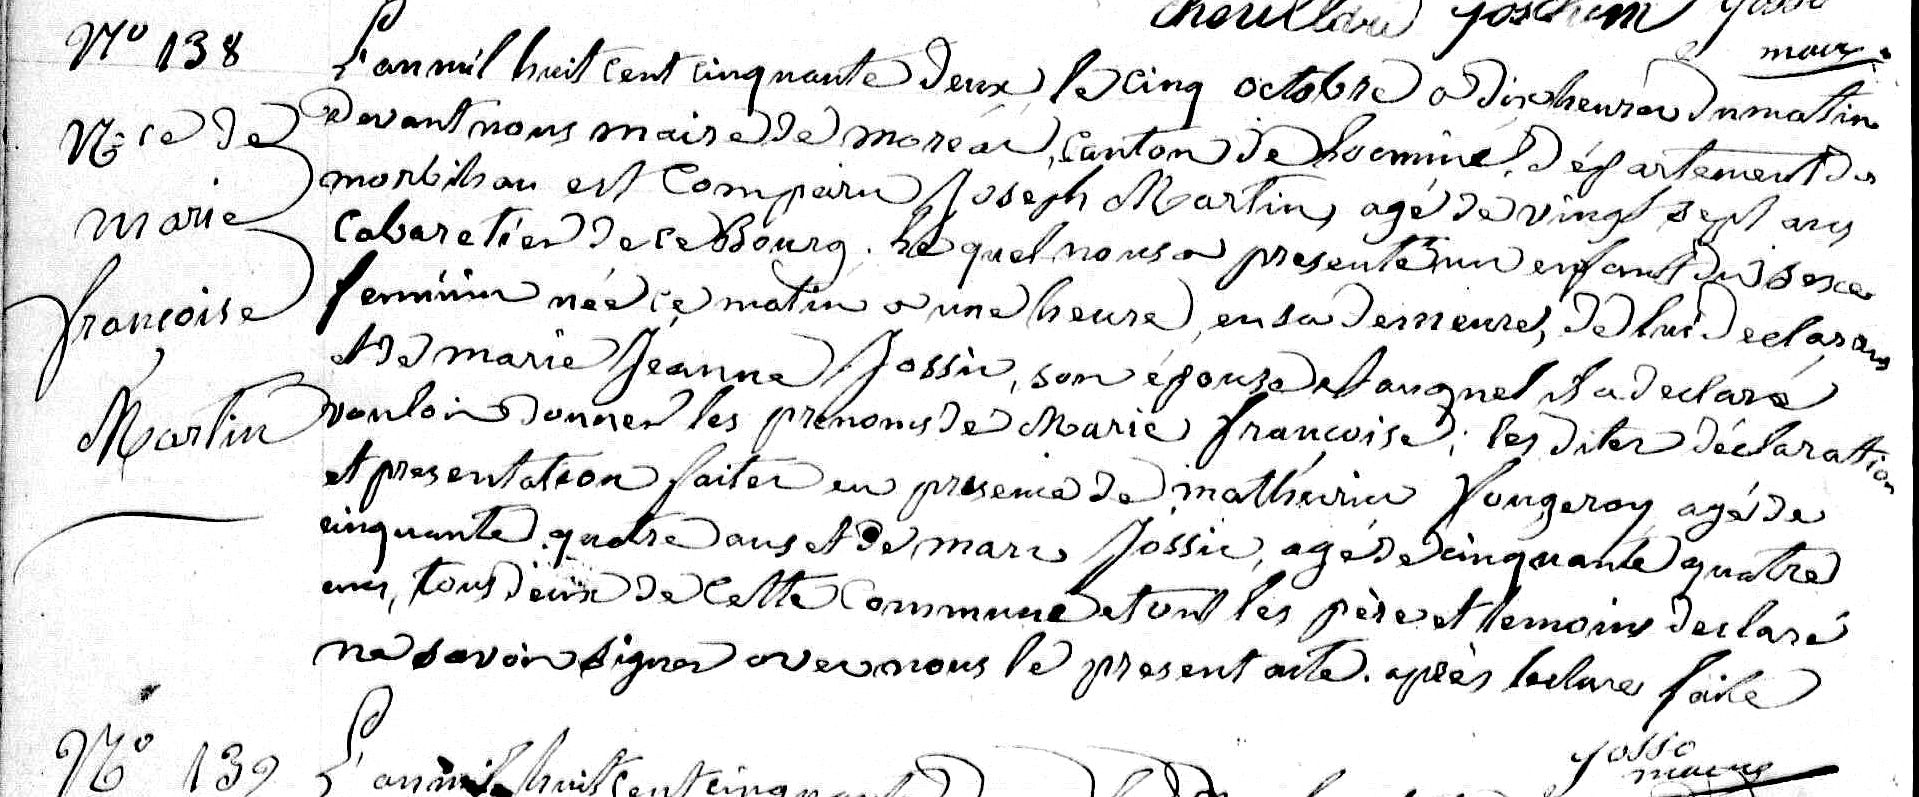 Josso
maire
N° 138
Nce de
marie
françoise
Martin
L'an mil huit cent cinquante deux, le cinq octobre a dix heures du matin
devant nous maire de moréac, canton de Locminé, Département du
morbihan est comparu Joseph Martin, agé de vingt sept ans
cabaretier de ce Bourg. Le quel nous a presenté un enfant du sexe
feminin née ce matin a une heure, en sa demeure, de lui declarant
et de marie Jeanne Jossic, son épouse et auquel il a declaré
vouloir donner les prenoms de Marie françoise; les dites déclaration
et presentation faites en presence de mathurin Fougeroy agé de
cinquante quatre ans et de marc Jossic, agé de cinquante quatre
ans, tous deux de cette commune et ont les père et temoins declaré
ne savoir signer avec nous le present acte. après lecture faite
Josso
maire
N° 139
L'an mil huit cent cinquante